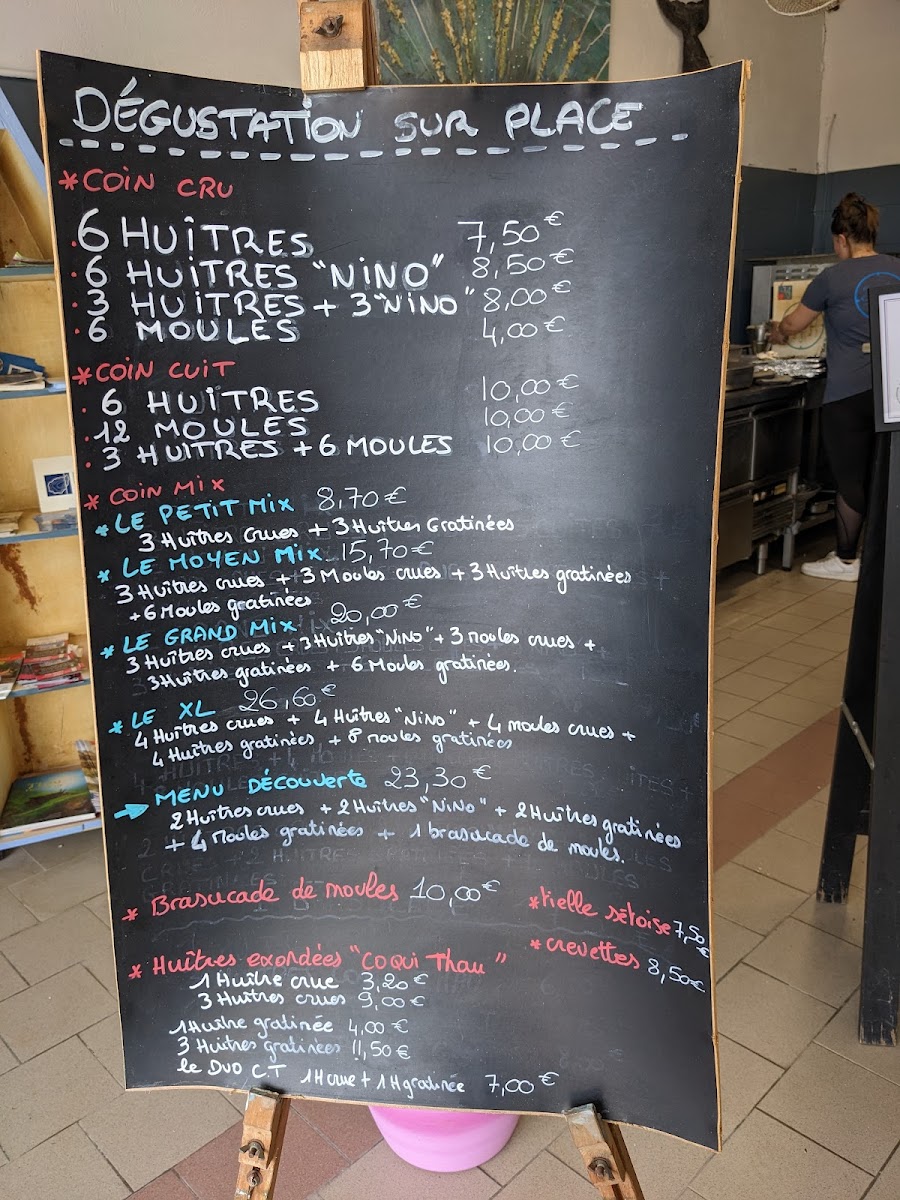 DÉGUSTATION SUR PLACE
*COIN CRU
.6 HUÎTRES 7,50€
.6 HUÎTRES "NINO" 8,50€
.3 HUÎTRES + 3 "NINO" 8,00€
.6 MOULES 4,00€
*COIN CUIT
.6 HUÎTRES 10,00€
.12 MOULES 10,00€
.3 HUÎTRES + 6 MOULES 10,00€
*COIN MIX
*LE PETIT MIX 8,70€
3 Huîtres crues + 3 Huîtres Gratinées
*LE MOYEN MIX 15,70€
3 Huîtres crues + 3 Moules crues + 3 Huîtres gratinées
+ 6 Moules gratinées
*LE GRAND MIX 20,00€
3 Huîtres crues + 3 Huîtres "NINO" + 3 Moules crues +
3 Huîtres gratinées + 6 Moules gratinées.
*LE XL 26,60€
4 Huîtres crues + 4 Huîtres "NINO" + 4 moules crues +
4 Huîtres gratinées + 8 Moules gratinées
→ MENU DÉCOUVERTE 23,30€
2 Huîtres crues + 2 Huîtres "NINO" + 2 Huîtres gratinées
+ 4 Moules gratinées + 1 brasucade de moules.
* Brasucade de moules 10,00€
*tielle sétoise 7,50€
*crevettes 8,50€
* Huîtres exondées "COQUI Thau"
1 Huître crue 3,20€
3 Huîtres crues 9,00€
1 Huître gratinée 4,00€
3 Huîtres gratinées 11,50€
le DUO CT 1 H crue + 1 H gratinée 7,00€